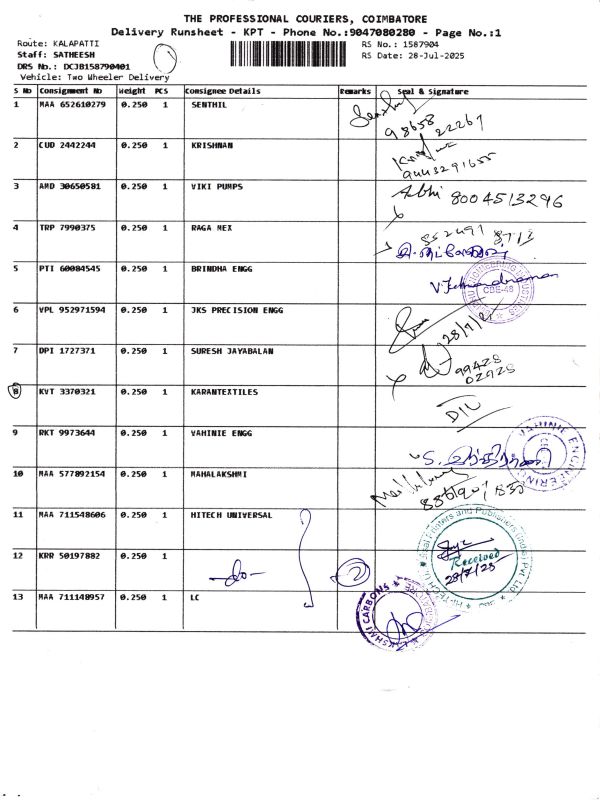 THE PROFESSIONAL COURIERS, COIMBATORE
Delivery Runsheet - KPT - Phone No.:9047080280 - Page No.:1
Route: KALAPATTI
RS No.: 1587904
Staff: SATHEESH
RS Date: 28-Jul-2025
DRS No.: DCJB158790401
Vehicle: Two Wheeler Delivery
S No Consignment No Weight PCS Consignee Details Remarks Seal & Signature
1 MAA 652610279 0.250 1 SENTHIL
98658 22267
2 CUD 2442244 0.250 1 KRISHNAN
9443291655
3 AMD 30650581 0.250 1 VIKI PUMPS Abhi 8004513296
4 TRP 7990375 0.250 1 RAGA MEX
5 PTI 60084545 0.250 1 BRINDHA ENGG
CBE-48
6 VPL 952971594 0.250 1 JKS PRECISION ENGG
7 DPI 1727371 0.250 1 SURESH JAYABALAN
99428
02925
8 KVT 3370321 0.250 1 KARANTEXTILES
9 RKT 9973644 0.250 1 VAHINIE ENGG
VAHINIE ENGINEERING
10 MAA 577892154 0.250 1 MAHALAKSHMI
11 MAA 711548606 0.250 1 HITECH UNIVERSAL
Received
28/7/25
12 KRR 50197882 0.250 1 -do- 2
13 MAA 711148957 0.250 1 LC